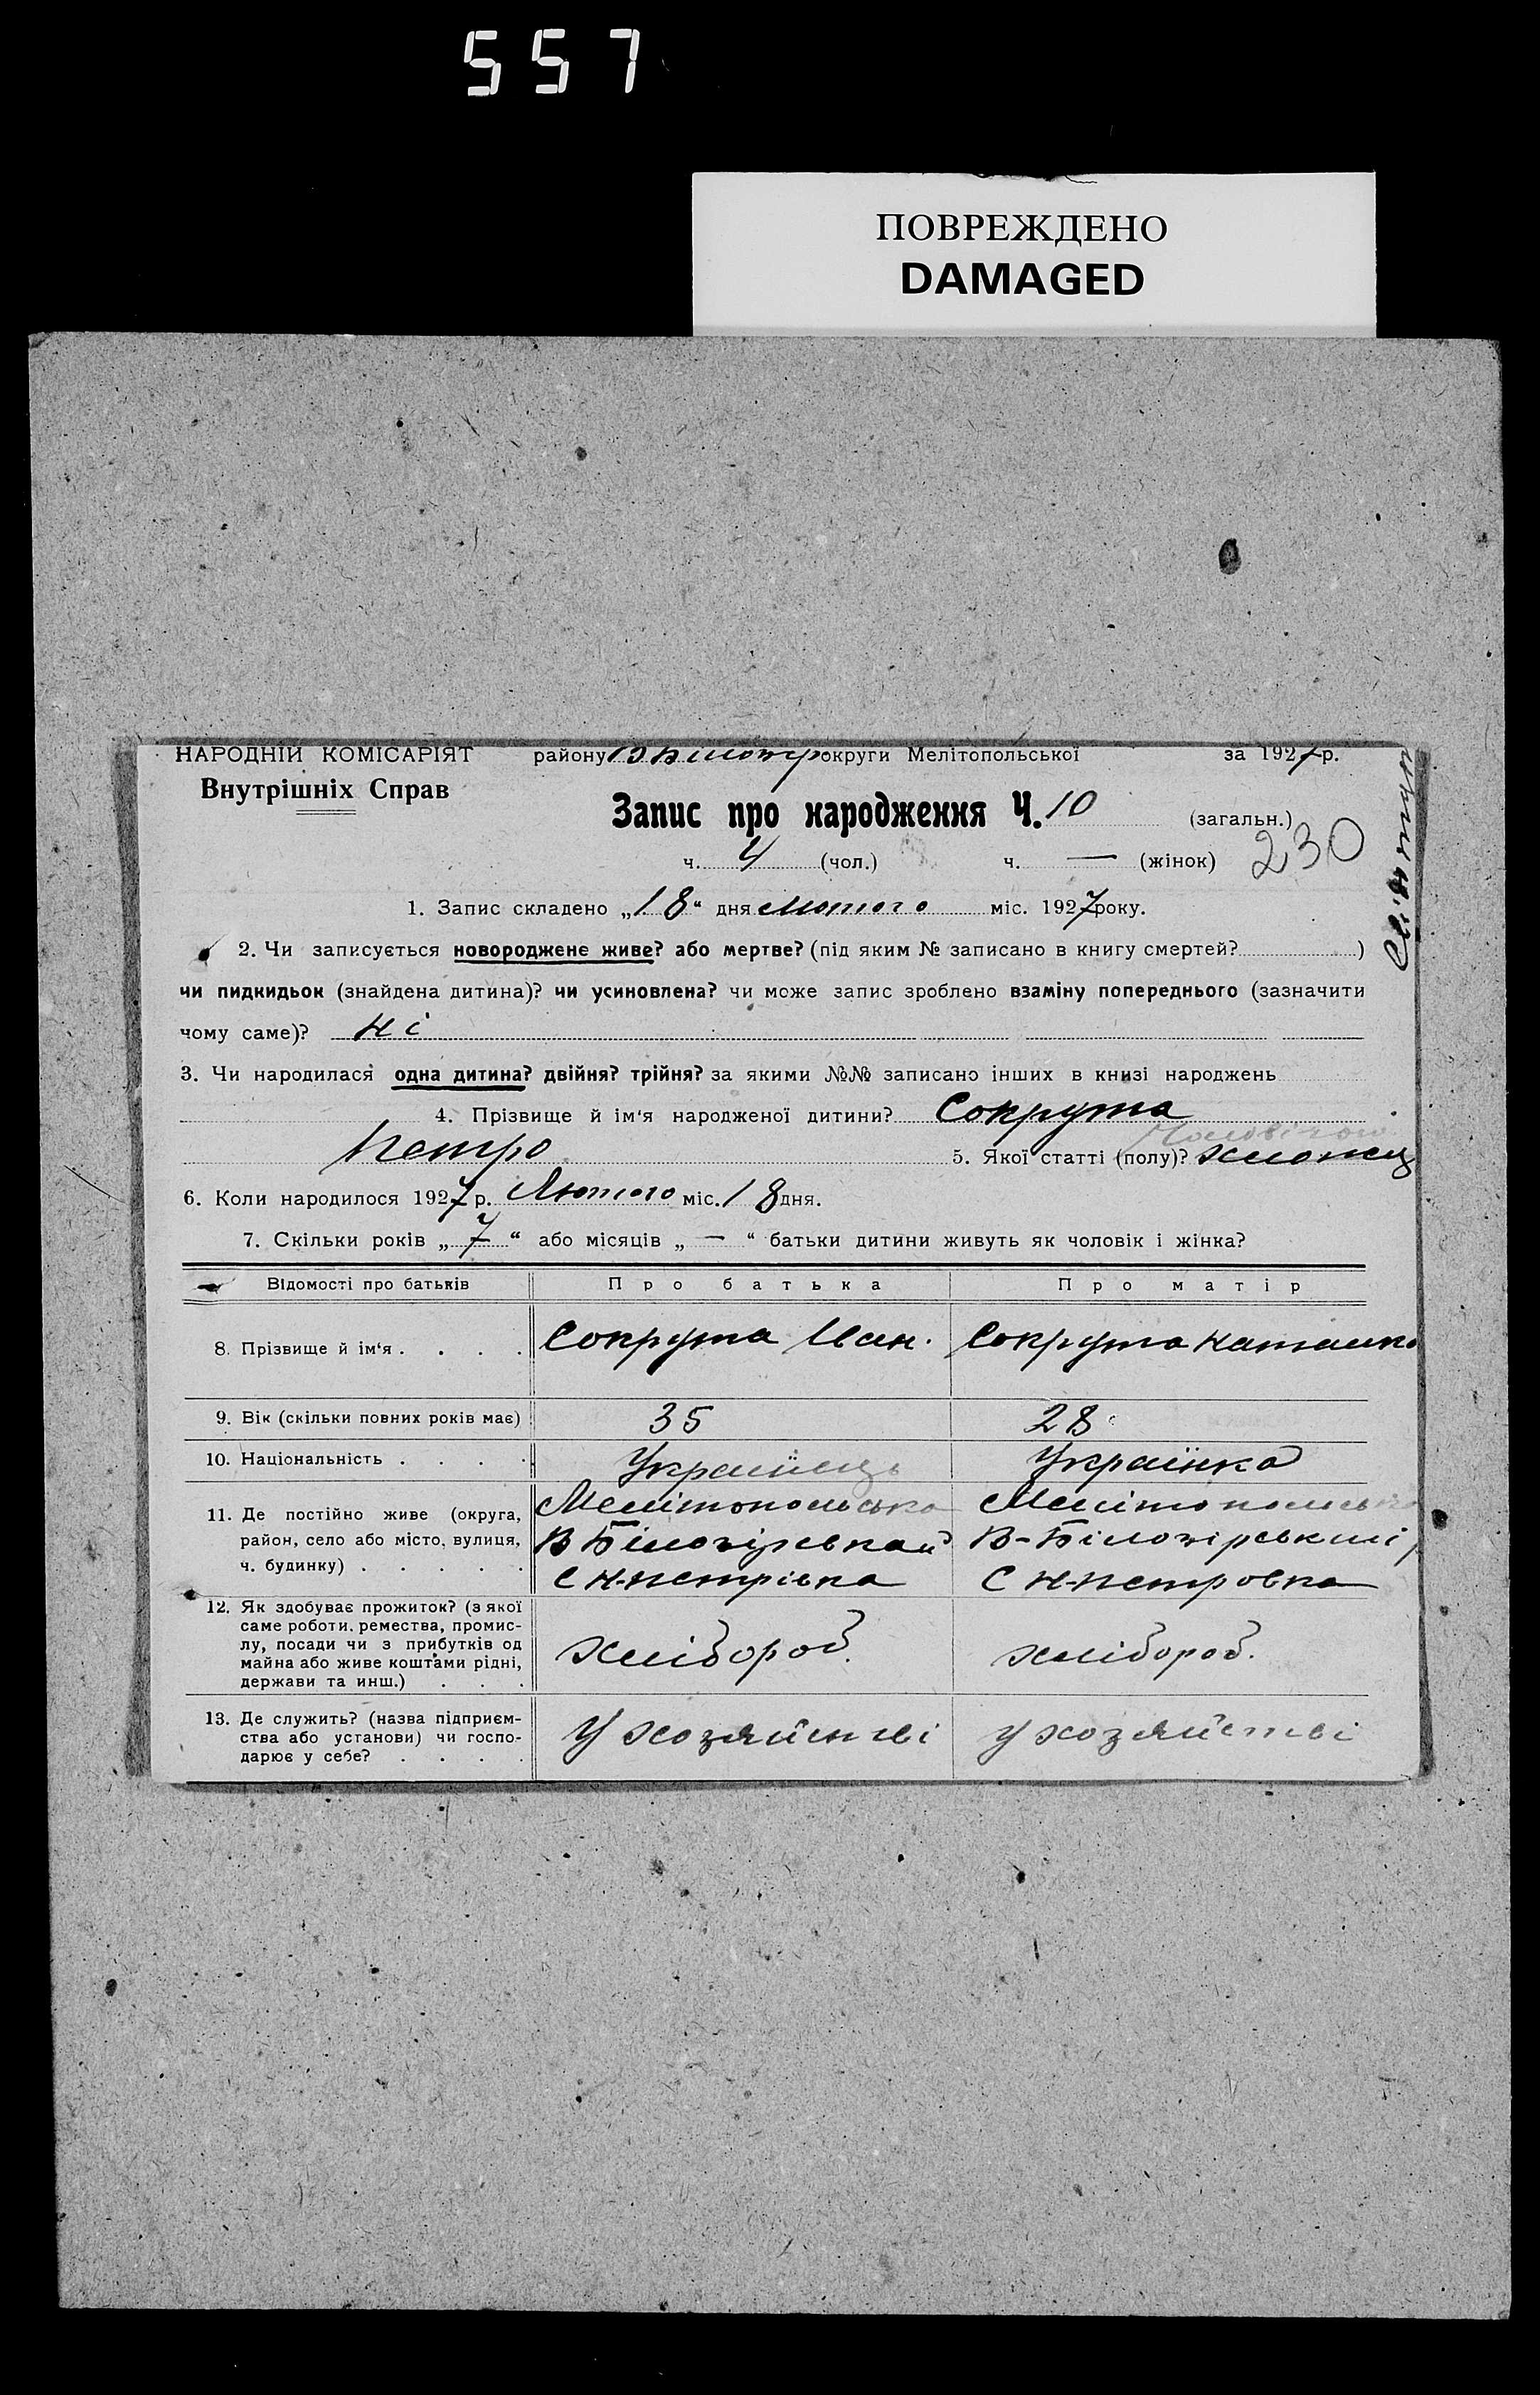 557
ПОВРЕЖДЕНО
DAMAGED
НАРОДНІЙ КОМІСАРІЯТ району округи Мелітопольської за 1927 р.
Внутрішніх Справ
Запис про народження Ч. 10 (загальн.)
ч. 4 (чол.) ч. — (жінок) 230
1. Запис складено „18“ дня Лютого міс. 1927 року.
2. Чи записується новороджене живе? або мертве? (під яким № записано в книгу смертей? )
чи пидкидьок (знайдена дитина)? чи усиновлена? чи може запис зроблено взаміну попереднього (зазначити
чому саме)? Ні
3. Чи народилася одна дитина? двійня? трійня? за якими №№ записано інших в книзі народжень
4. Прізвище й ім'я народженої дитини? Сокрута
Петро 5. Якої статті (полу)? хлопец
6. Коли народилося 1927 р. Лютого міс. 18 дня.
7. Скільки років „7“ або місяців „—“ батьки дитини живуть як чоловік і жінка?
Відомості про батьків Про батька Про матір
8. Прізвище й ім'я . . . . Сокрута Іван. Сокрута Наталка
9. Вік (скільки повних років має) 35 28
10. Національність . . . . Українець Українка
11. Де постійно живе (округа, Мелітопольська Мелітопольська
район, село або місто, вулиця, В Білозірськай В-Білозірський
ч. будинку) . . . . . С Н-петрівка С Н-петровка
12. Як здобуває прожиток? (з якої
саме роботи, ремества, промис-
лу, посади чи з прибутків од хлібороб. хлібороб.
майна або живе коштами рідні,
держави та инш.) . . .
13. Де служить? (назва підприєм-
ства або установи) чи госпо- У хозяйстві у хозяйстві
дарює у себе? . . . .